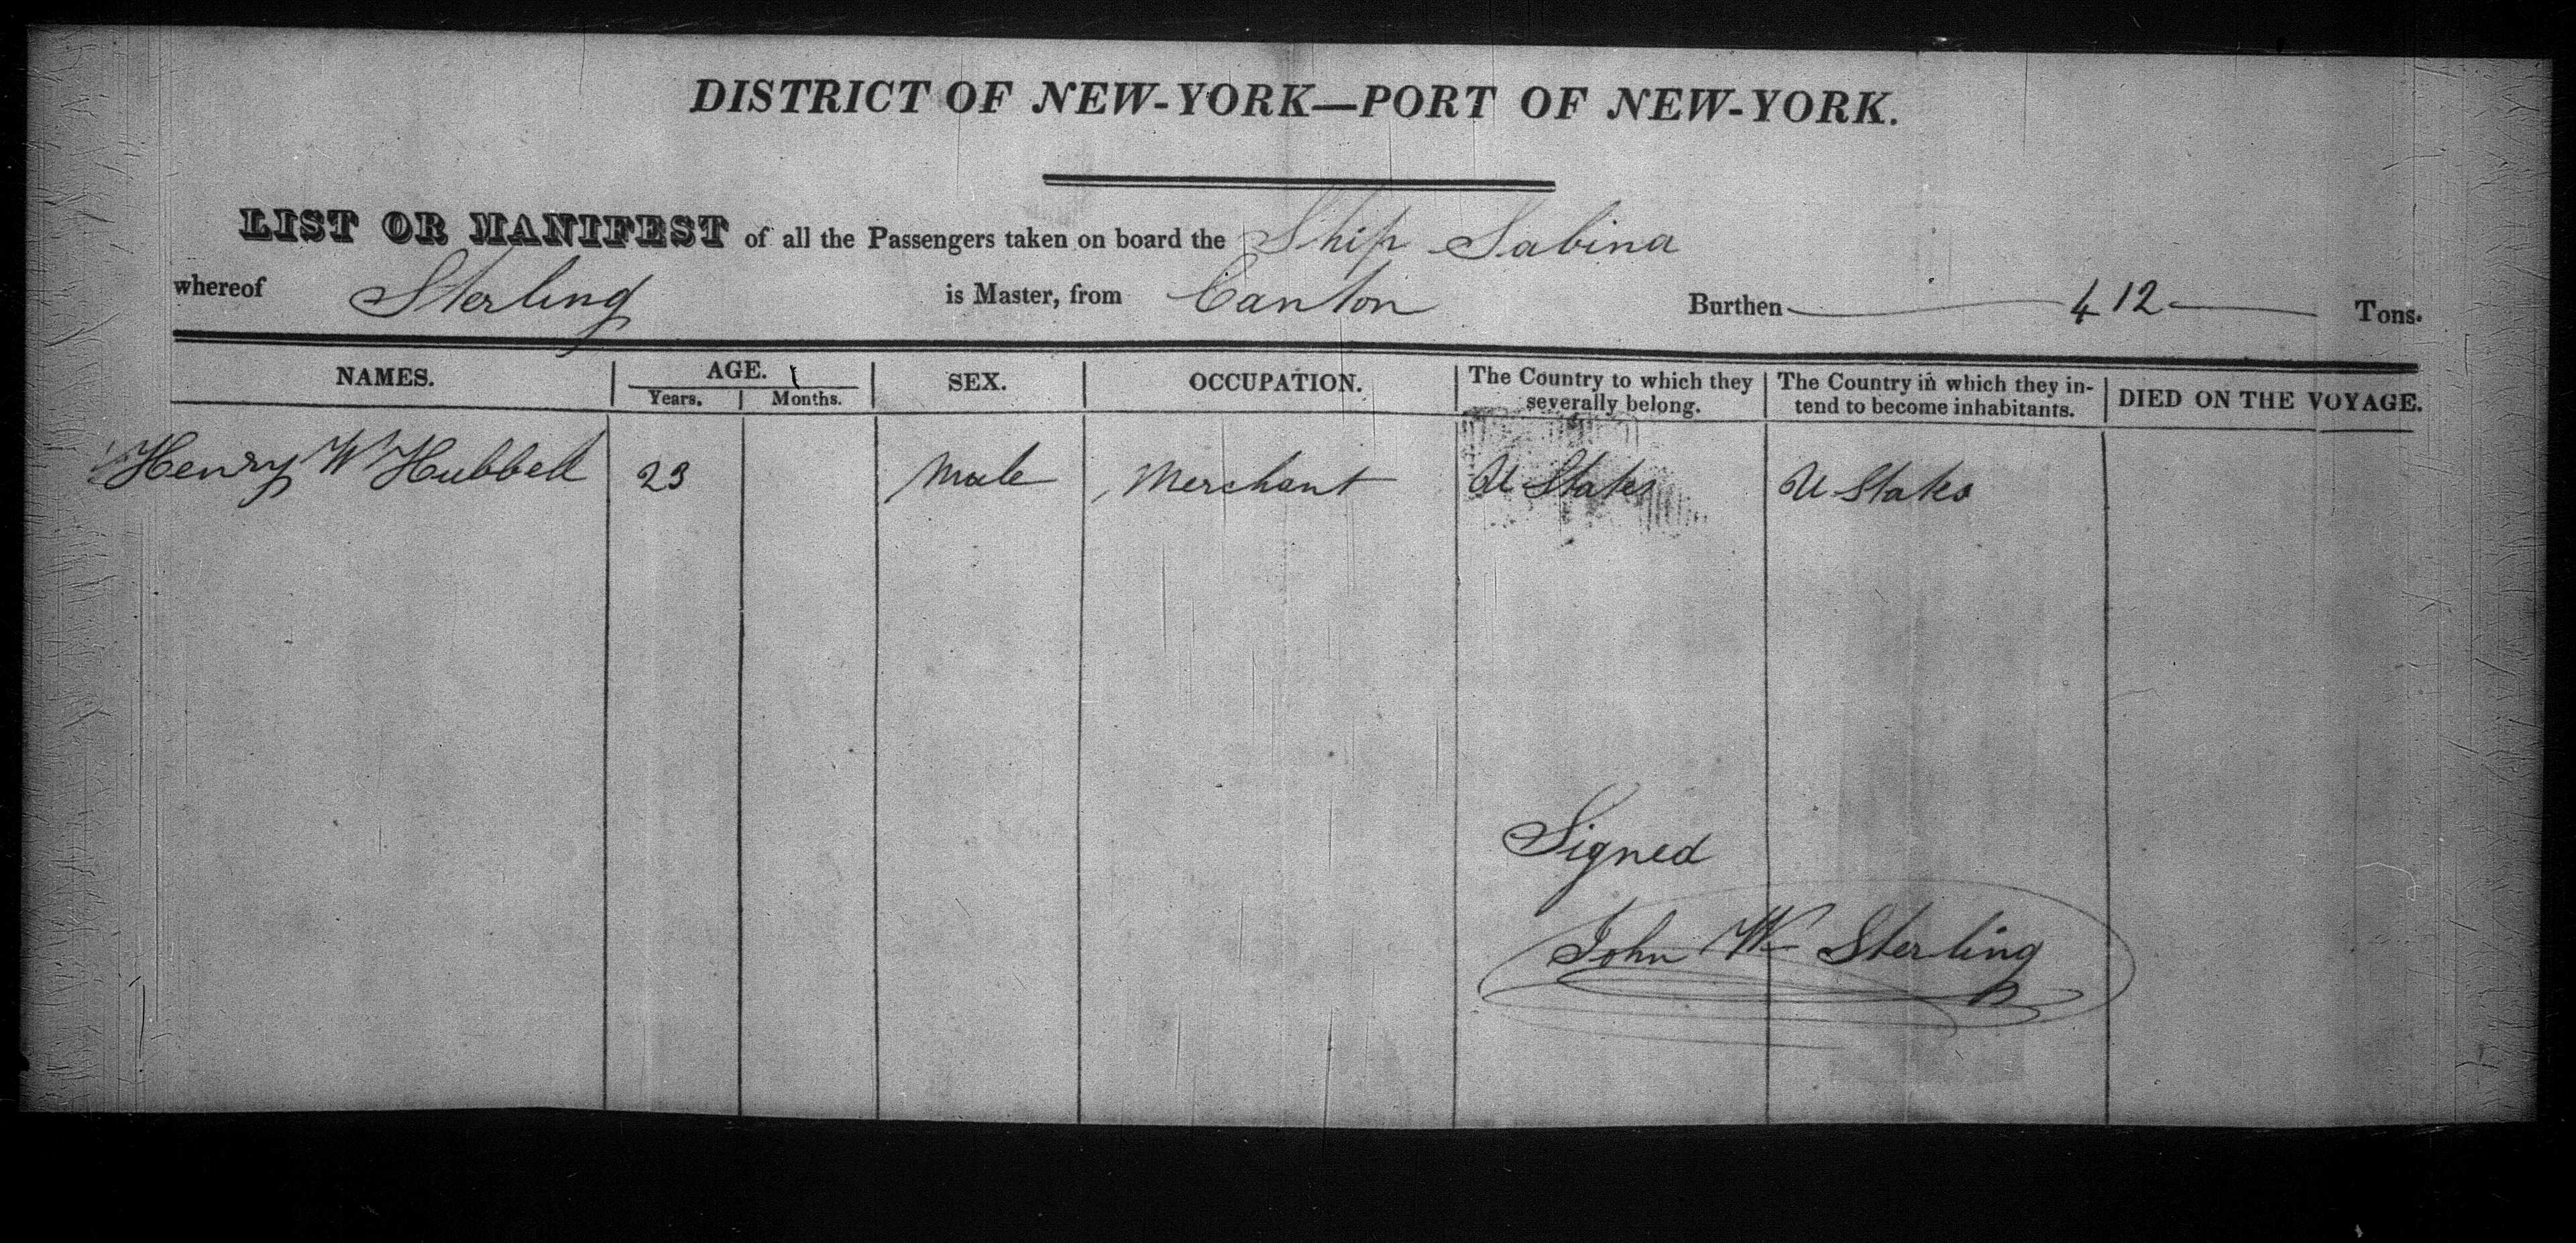 DISTRICT OF NEW-YORK—PORT OF NEW-YORK.
LIST OR MANIFEST of all the Passengers taken on board the Ship Sabina
whereof Sterling is Master, from Canton Burthen 412 Tons.
NAMES. AGE. SEX. OCCUPATION. The Country to which they severally belong. The Country in which they intend to become inhabitants. DIED ON THE VOYAGE.
Years. Months.
Henry W Hubbell 23 Male Merchant U States U States
Signed
John W Sterling